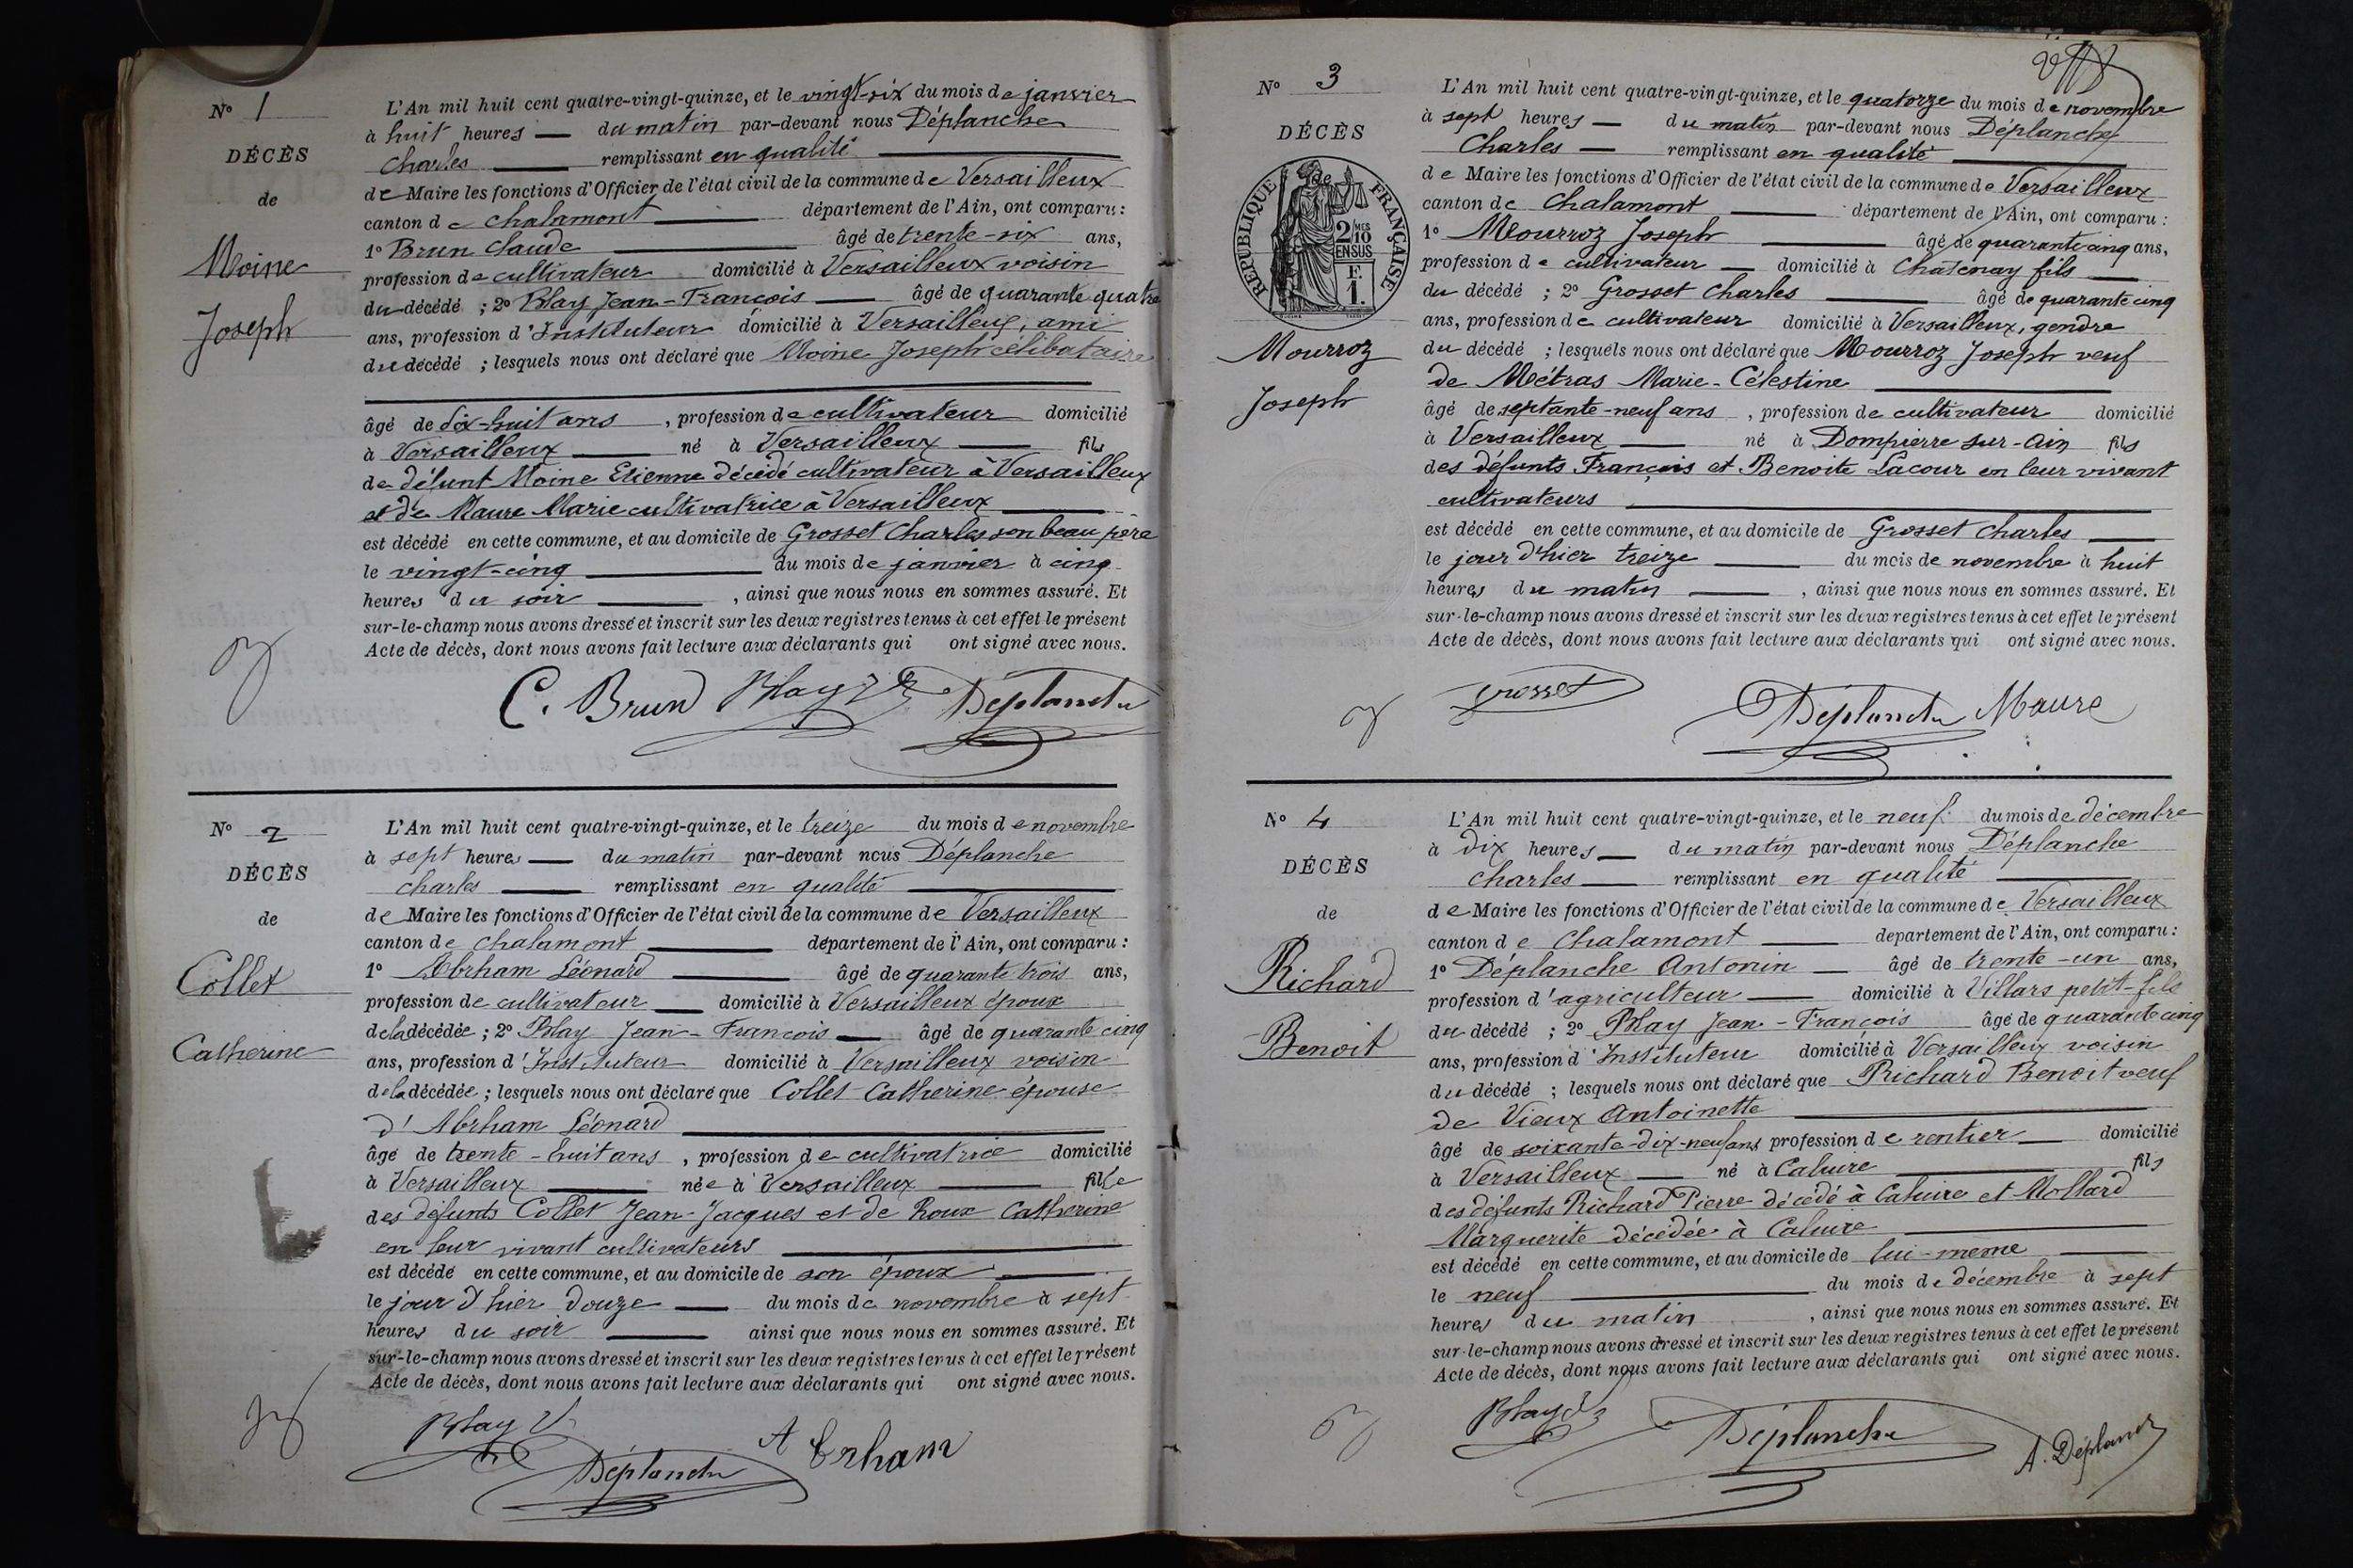 N° 1
DÉCÈS
de
Moine
Joseph
L'An mil huit cent quatre-vingt-quinze, et le vingt-six du mois de janvier
à huit heures du matin par-devant nous Déplanche
Charles remplissant en qualité
de Maire les fonctions d'Officier de l'état civil de la commune de Versailleux
canton de Chalamont département de l'Ain, ont comparu :
1° Brun Claude âgé de trente-six ans,
profession de cultivateur domicilié à Versailleux voisin
du décédé ; 2° Blay Jean-François âgé de quarante quatre
ans, profession d'Instituteur domicilié à Versailleux, ami
du décédé ; lesquels nous ont déclaré que Moine Joseph célibataire
âgé de dix-huit ans, profession de cultivateur domicilié
à Versailleux né à Versailleux fils
de défunt Moine Etienne décédé cultivateur à Versailleux
et de Maure Marie cultivatrice à Versailleux
est décédé en cette commune, et au domicile de Grosset Charles son beau père
le vingt-cinq du mois de janvier à cinq
heures du soir, ainsi que nous nous en sommes assuré. Et
sur-le-champ nous avons dressé et inscrit sur les deux registres tenus à cet effet le présent
Acte de décès, dont nous avons fait lecture aux déclarants qui ont signé avec nous.
C. Brun Blay Déplanche
N° 2
DÉCÈS
de
Collet
Catherine
L'An mil huit cent quatre-vingt-quinze, et le treize du mois de novembre
à sept heures du matin par-devant nous Déplanche
Charles remplissant en qualité
de Maire les fonctions d'Officier de l'état civil de la commune de Versailleux
canton de Chalamont département de l'Ain, ont comparu :
1° Abrham Léonard âgé de quarante trois ans,
profession de cultivateur domicilié à Versailleux époux
de la décédée ; 2° Blay Jean-François âgé de quarante cinq
ans, profession d'Instituteur domicilié à Versailleux voisin
de la décédée ; lesquels nous ont déclaré que Collet Catherine épouse
d'Abrham Léonard
âgé de trente-huit ans, profession de cultivatrice domicilié
à Versailleux née à Versailleux fille
des défunts Collet Jean-Jacques et de Roux Catherine
en leur vivant cultivateurs
est décédé en cette commune, et au domicile de son époux
le jour d'hier douze du mois de novembre à sept
heures du soir ainsi que nous nous en sommes assuré. Et
sur-le-champ nous avons dressé et inscrit sur les deux registres tenus à cet effet le présent
Acte de décès, dont nous avons fait lecture aux déclarants qui ont signé avec nous.
Blay Déplanche Abrham
N° 3
DÉCÈS
de
RÉPUBLIQUE FRANÇAISE
2/10MES
EN SUS
F.
1.
Mourroz
Joseph
L'An mil huit cent quatre-vingt-quinze, et le quatorze du mois de novembre
à sept heures du matin par-devant nous Déplanche
Charles remplissant en qualité
de Maire les fonctions d'Officier de l'état civil de la commune de Versailleux
canton de Chalamont département de l'Ain, ont comparu :
1° Mourroz Joseph âgé de quarante cinq ans,
profession de cultivateur domicilié à Châtenay fils
du décédé ; 2° Grosset Charles âgé de quarante cinq
ans, profession de cultivateur domicilié à Versailleux, gendre
du décédé ; lesquels nous ont déclaré que Mourroz Joseph veuf
de Métras Marie-Célestine
âgé de septante-neuf ans, profession de cultivateur domicilié
à Versailleux né à Dompierre sur-Ain fils
des défunts François et Benoite Lacour en leur vivant
cultivateurs
est décédé en cette commune, et au domicile de Grosset Charles
le jour d'hier treize du mois de novembre à huit
heures du matin, ainsi que nous nous en sommes assuré. Et
sur-le-champ nous avons dressé et inscrit sur les deux registres tenus à cet effet le présent
Acte de décès, dont nous avons fait lecture aux déclarants qui ont signé avec nous.
Grosset Déplanche Maure
N° 4
DÉCÈS
de
Richard
Benoit
L'An mil huit cent quatre-vingt-quinze, et le neuf du mois de décembre
à dix heures du matin par-devant nous Déplanche
Charles remplissant en qualité
de Maire les fonctions d'Officier de l'état civil de la commune de Versailleux
canton de Chalamont departement de l'Ain, ont comparu :
1° Déplanche Antonin âgé de trente-un ans,
profession d'agriculteur domicilié à Villars petit-fils
du décédé ; 2° Blay Jean-François âgé de quarante cinq
ans, profession d'Instituteur domicilié à Versailleux voisin
du décédé ; lesquels nous ont déclaré que Richard Benoit veuf
de Vieux Antoinette
âgé de soixante-dix-neuf ans profession de rentier domicilié
à Versailleux né à Caluire fils
des défunts Richard Pierre décédé à Caluire et Mollard
Marguerite décédée à Caluire
est décédé en cette commune, et au domicile de lui-meme
le neuf du mois de décembre à sept
heures du matin, ainsi que nous nous en sommes assuré. Et
sur-le-champ nous avons dressé et inscrit sur les deux registres tenus à cet effet le présent
Acte de décès, dont nous avons fait lecture aux déclarants qui ont signé avec nous.
Blay Déplanche A. Déplanch